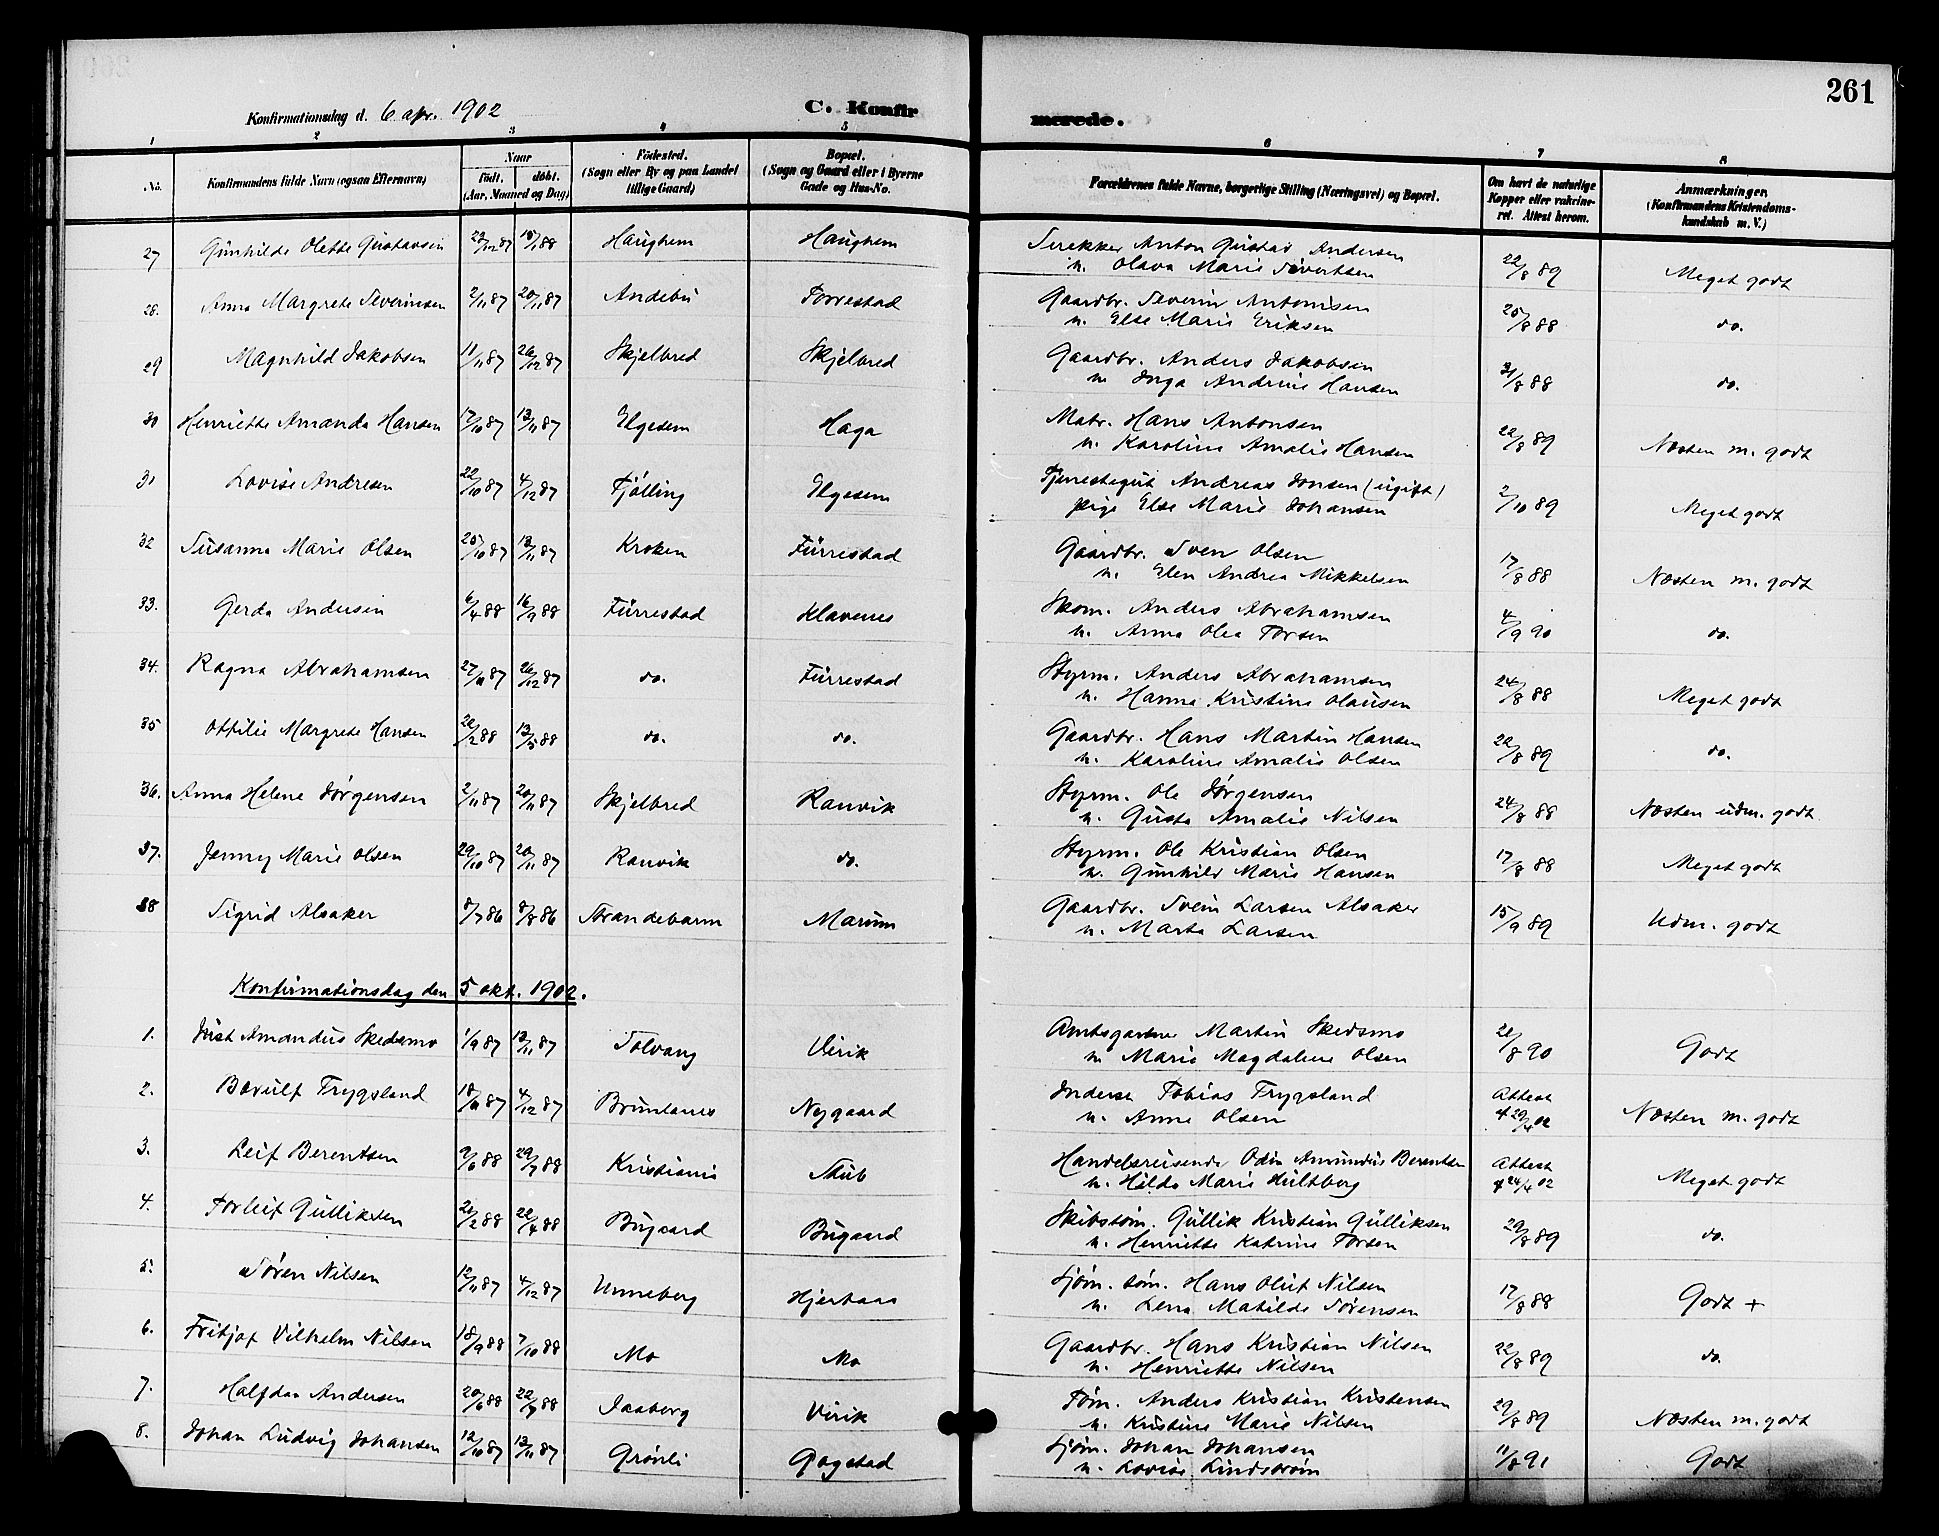 261
Konfirmationsdag d. 6 apr. 1902 C. Konfirmerede.
1 2 3 4 5 6 7 8
No. Konfirmandens fulde Navn (ogsaa Efternavn) Naar født. døbt. (Aar, Maaned og Dag) Fødested. (Sogn eller By og paa Landet tillige Gaard) Bopæl. (Sogn og Gaard eller i Byerne Gade og Hus-No. Forældrenes fulde Navne, borgerlige Stilling (Næringsvei) og Bopæl. Om havt de naturlige Kopper eller vakcineret. Attest herom. Anmærkninger. (Konfirmandens Kristendomskundskab m. V.)
27 Gunhilde Olette Gustavsen 29/12 87 15/1 88 Haughem Haughem Trekker Anton Gustav Andersen 22/8 89 Meget godt
u. Olava Marie Sivertsen
28. Anna Margrete Severinsen 2/11 87 20/11 87 Andebu Torrestad Gaardbr. Severin Antonisen 25/8 88 do.
u. Else Marie Eriksen
29 Magnhild Jakobsen 11/11 87 26/12 87 Skjelbred Skjelbred Gaardbr. Anders Jakobsen 31/8 88 do.
u. Inga Andrine Hansen
30 Henriette Amanda Hansen 17/10 87 13/11 87 Elgesem Haga Matr. Hans Antonsen 22/8 89 Næsten m. godt
u. Karoline Amalie Hansen
31 Lovise Andresen 22/10 87 4/12 87 Tjølling Elgesem Tjenestegut Andreas Jonsen (ugift) 2/10 89 Meget godt
pige Else Marie Johansen
32 Susanna Marie Olsen 25/10 87 13/11 87 Kroken Furrestad Gaardbr. Sven Olsen 17/8 88 Næsten m. godt
u. Elen Andrea Mikkelsen
33. Gerda Andersen 6/4 88 16/9 88 Furrestad Klavenes Skom. Anders Abrahamsen 4/9 90 do.
u. Anna Olea Torsen
34. Ragna Abrahamsen 27/11 87 26/12 87 do. Furrestad Styrm. Anders Abrahamsen 24/8 88 Meget godt
u. Hanna Kristine Olausen
35 Ottilie Margrete Hansen 20/2 88 13/5 88 do. do. Gaardbr. Hans Martin Hansen 22/8 89 do.
u. Karoline Amalie Olsen
36. Anna Helene Jørgensen 2/11 87 20/11 87 Skjelbred Ranvik Styrm. Ole Jørgensen 24/8 88 Næsten udm. godt
u. Gusta Amalie Nilsen
37. Jenny Marie Olsen 29/10 87 20/11 87 Ranvik do. Styrm. Ole Kristian Olsen 17/8 88 Meget godt
u. Gunhild Marie Hansen
38 Sigrid Alsaker 8/7 86 8/8 86 Strandebarm Marum Gaardbr. Svein Larsen Alsaker 15/9 89 Udm. godt
u. Marta Larsen
Konfirmationsdag den 5 okt. 1902.
1. Just Amandus Skedsmo 1/9 87 13/11 87 Solvang Virik Amtsgartner Martin Skedsmo 21/8 90 Godt
u. Marie Magdalene Olsen
2. Bervulf Trygsland 18/11 87 4/12 87 Bruntanes Nygaard Inderst Tobias Trygsland Attest 29/4 02 Næsten m. godt
u. Anne Olsen
3. Leif Berentsen 9/6 88 29/7 88 Kristiania Stub Handelsreisende Odin Amundus Berentsen Attest 24/4 02 Meget godt
u. Hilda Marie Hultberg
4. Torleif Gulliksen 21/2 88 22/4 88 Bugaard Bugaard Skibstøm. Gullik Kristian Gulliksen 29/8 89 do.
u. Henriette Katrine Torsen
5. Søren Nilsen 12/11 87 4/12 87 Unneberg Hjertaas Sjøm. tøm. Hans Oluf Nilsen 17/8 88 Godt +
u. Lena Matilde Sørensen
6. Fritjof Vilhelm Nilsen 18/9 88 7/10 88 Mo Mo Gaardbr. Hans Kristian Nilsen 22/8 89 do.
u. Henriette Nilsen
7. Halfdan Andersen 20/6 88 22/7 88 Jaaberg Virik Tøm. Anders Kristian Kristensen 29/8 89 Næsten m. godt
u. Kristine Marie Nilsen
8. Johan Ludvig Johansen 12/10 87 13/11 87 Grønli Gogstad Sjøm. Johan Johansen 11/8 91 Godt
u. Lovise Lindstrøm